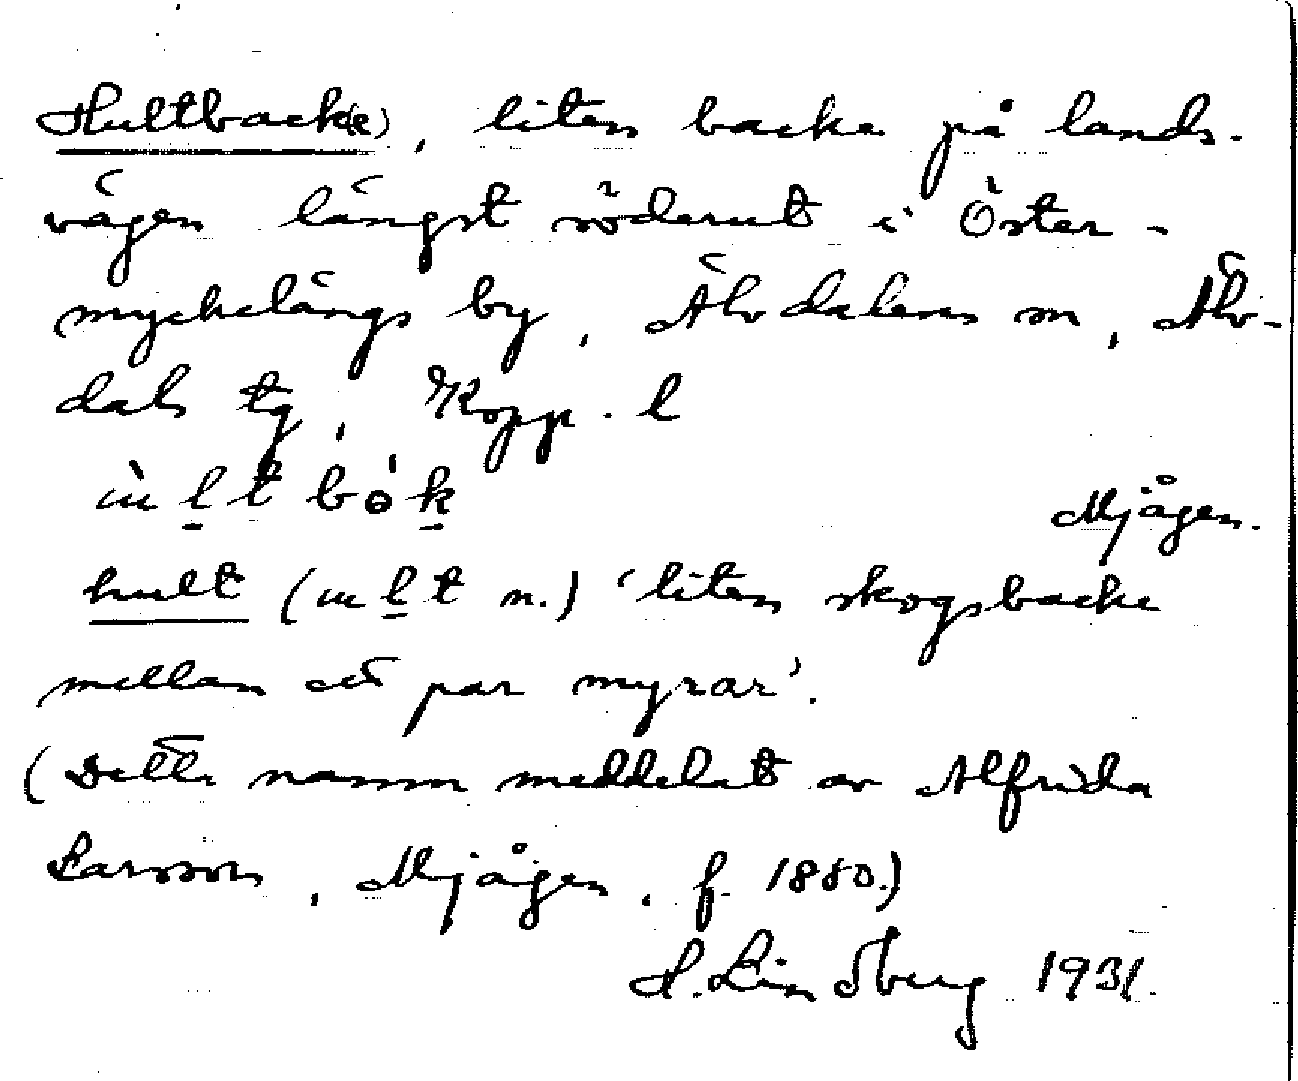 Hultback(e), liten backe på lands-
vägen längst söderut i Öster-
myckelängs by, Älvdalens sn, Älv-
dals tg, Kopp. l
ùḻt bȯḵ
Mjågen.
hult (uḻt n.) 'liten skogsbacke
mellan ett par myrar'.
(Detta namn meddelat av Alfrida
Larsson, Mjågen, f. 1880.)
H. Lindberg 1931.